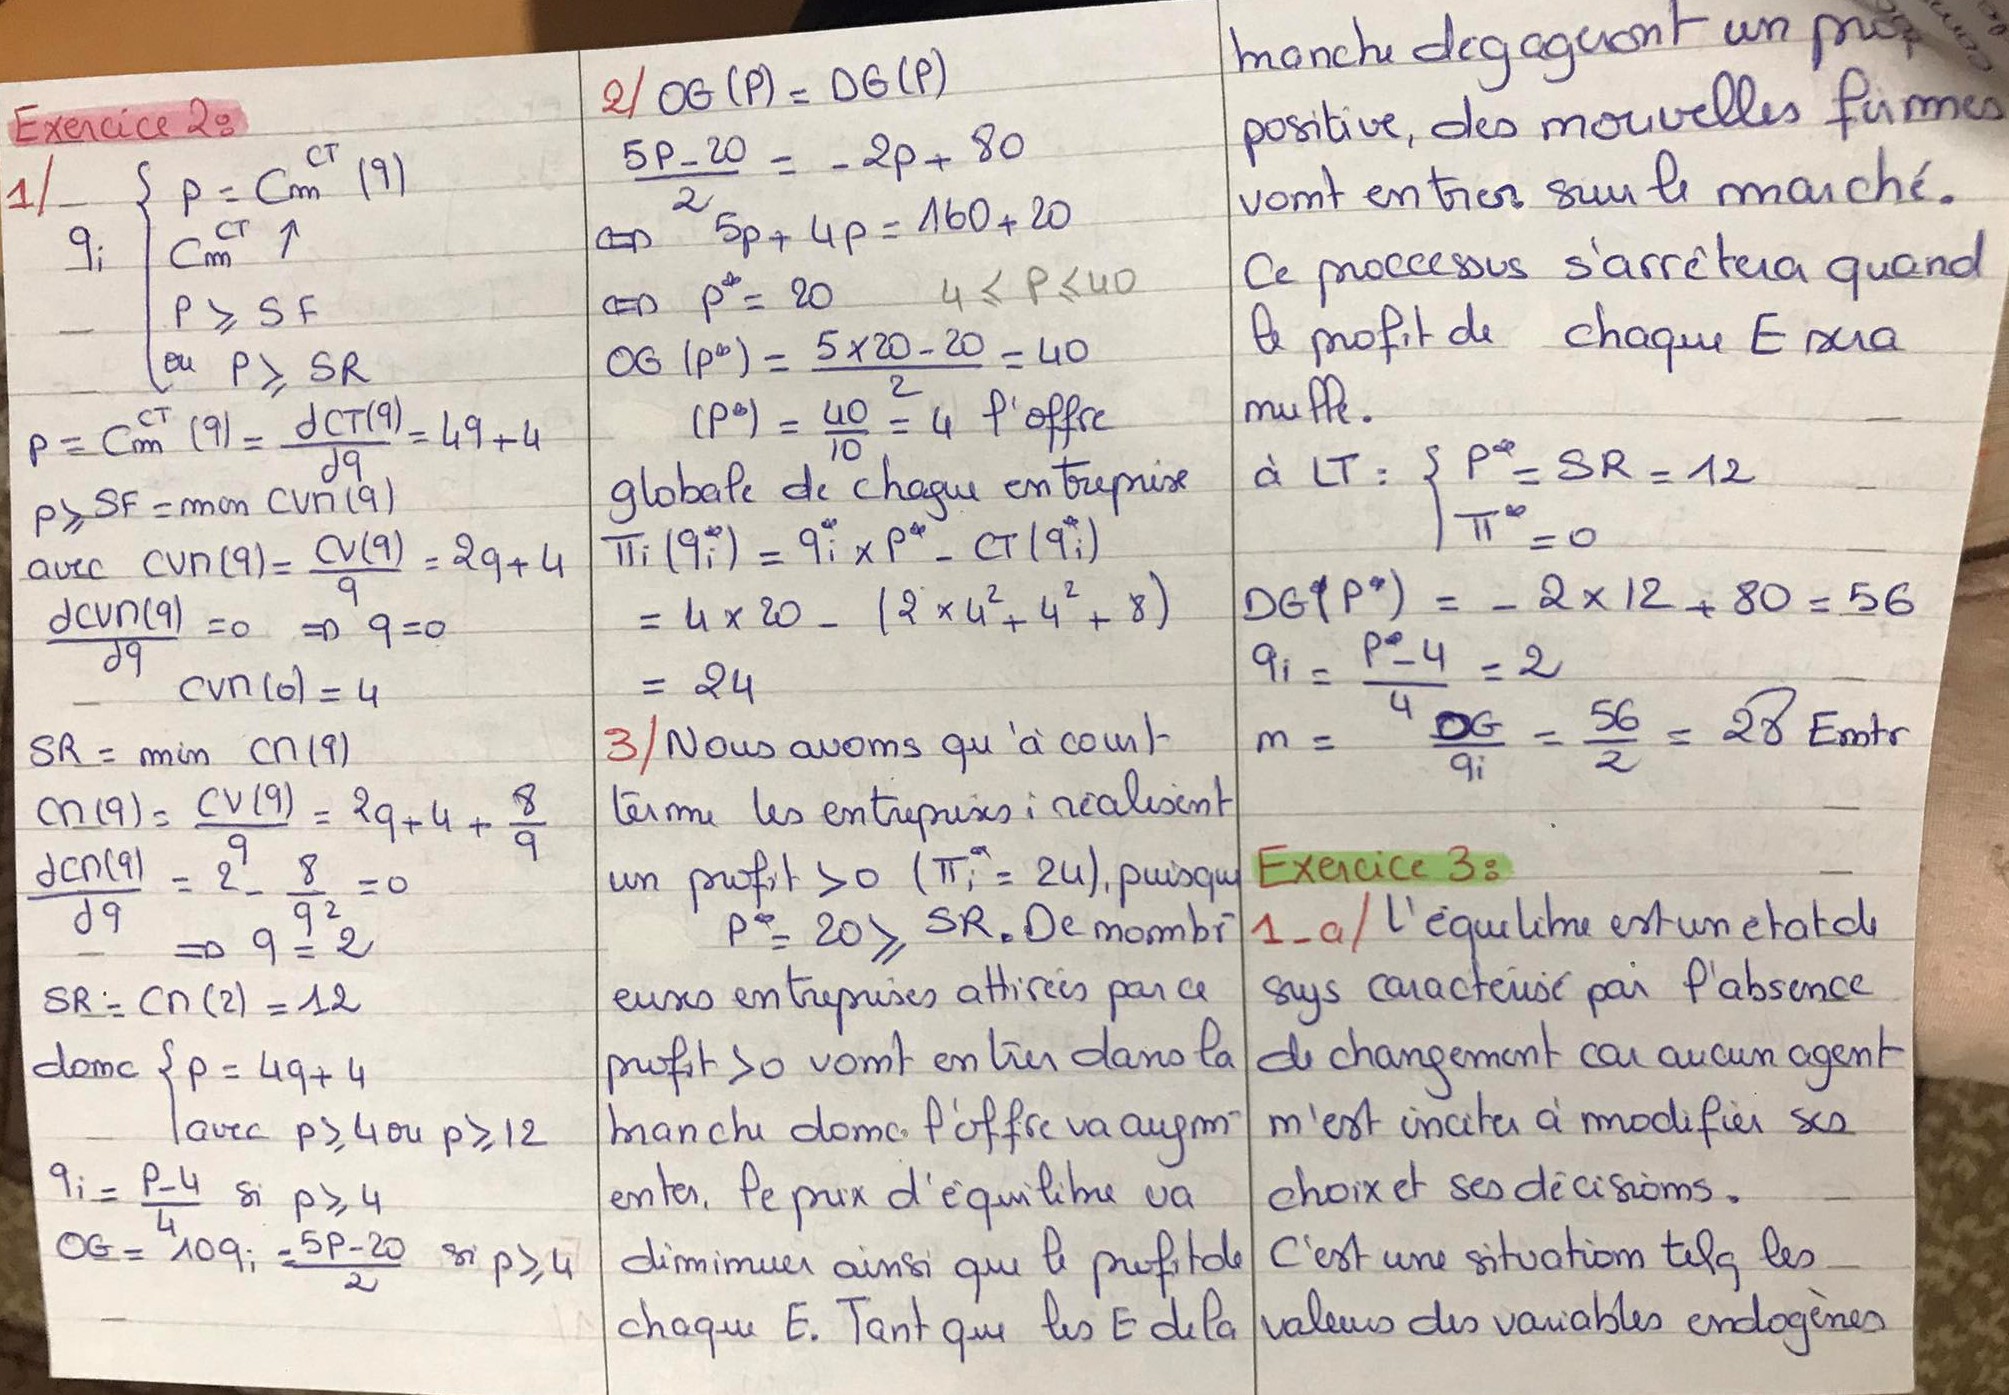 Exercice 2:
1/ q_i { p = Cm^CT (q)
Cm^CT ↑
P ⩾ SF
ou P ⩾ SR
p = Cm^CT (q) = dCT(q)/dq = 4q+4
p ⩾ SF = mon CVM(q)
avec CVM(q) = CV(q)/q = 2q+4
dCVM(q)/dq = 0 ⇒ q=0
CVM(0) = 4
SR = min CM(q)
CM(q) = CV(q)/q = 2q+4 + 8/q
dCM(q)/dq = 2 - 8/q² = 0
⇒ q = 2
SR = CM(2) = 12
donc { p = 4q+4
avec p ⩾ 4 ou p ⩾ 12
q_i = P-4/4 si p ⩾ 4
OG = 10q_i = 5P-20/2 si p ⩾ 4
2/ OG(P) = DG(P)
5P-20/2 = -2p + 80
⇔ 5p + 4p = 160+20
⇔ p* = 20 4 ⩽ P ⩽ 40
OG (p*) = 5×20-20/2 = 40
(P*) = 40/10 = 4 l'offre
globale de chaque entreprise
πi (qi*) = qi* × P* - CT(qi*)
= 4 × 20 - (2 × 4² + 4² + 8)
= 24
3/ Nous avons qu'à court
terme les entreprises i réalisent
un profit >0 (πi* = 24), puisque
P* = 20 ⩾ SR. De nombr
euses entreprises attirées par ce
profit >0 vont entrer dans la
branche donc l'offre va augm-
enter. le prix d'équilibre va
diminuer ainsi que le profit de
chaque E. Tant que les E de la
branche dégageront un
positive, des nouvelles firmes
vont entrer sur le marché.
Ce proccessus s'arrêtera quand
le profit de chaque E sera
nulle.
à LT : { P* = SR = 12
π* = 0
DG(P*) = - 2×12 + 80 = 56
q_i = P*-4/4 = 2
n = OG/qi = 56/2 = 28 Entr
Exercice 3:
1-a/ L'équilibre est un etat de
sys caractérisé par l'absence
de changement car aucun agent
n'est inciter à modifier ses
choix et ses décisions.
C'est une situation telq les
valeurs des variables endogènes